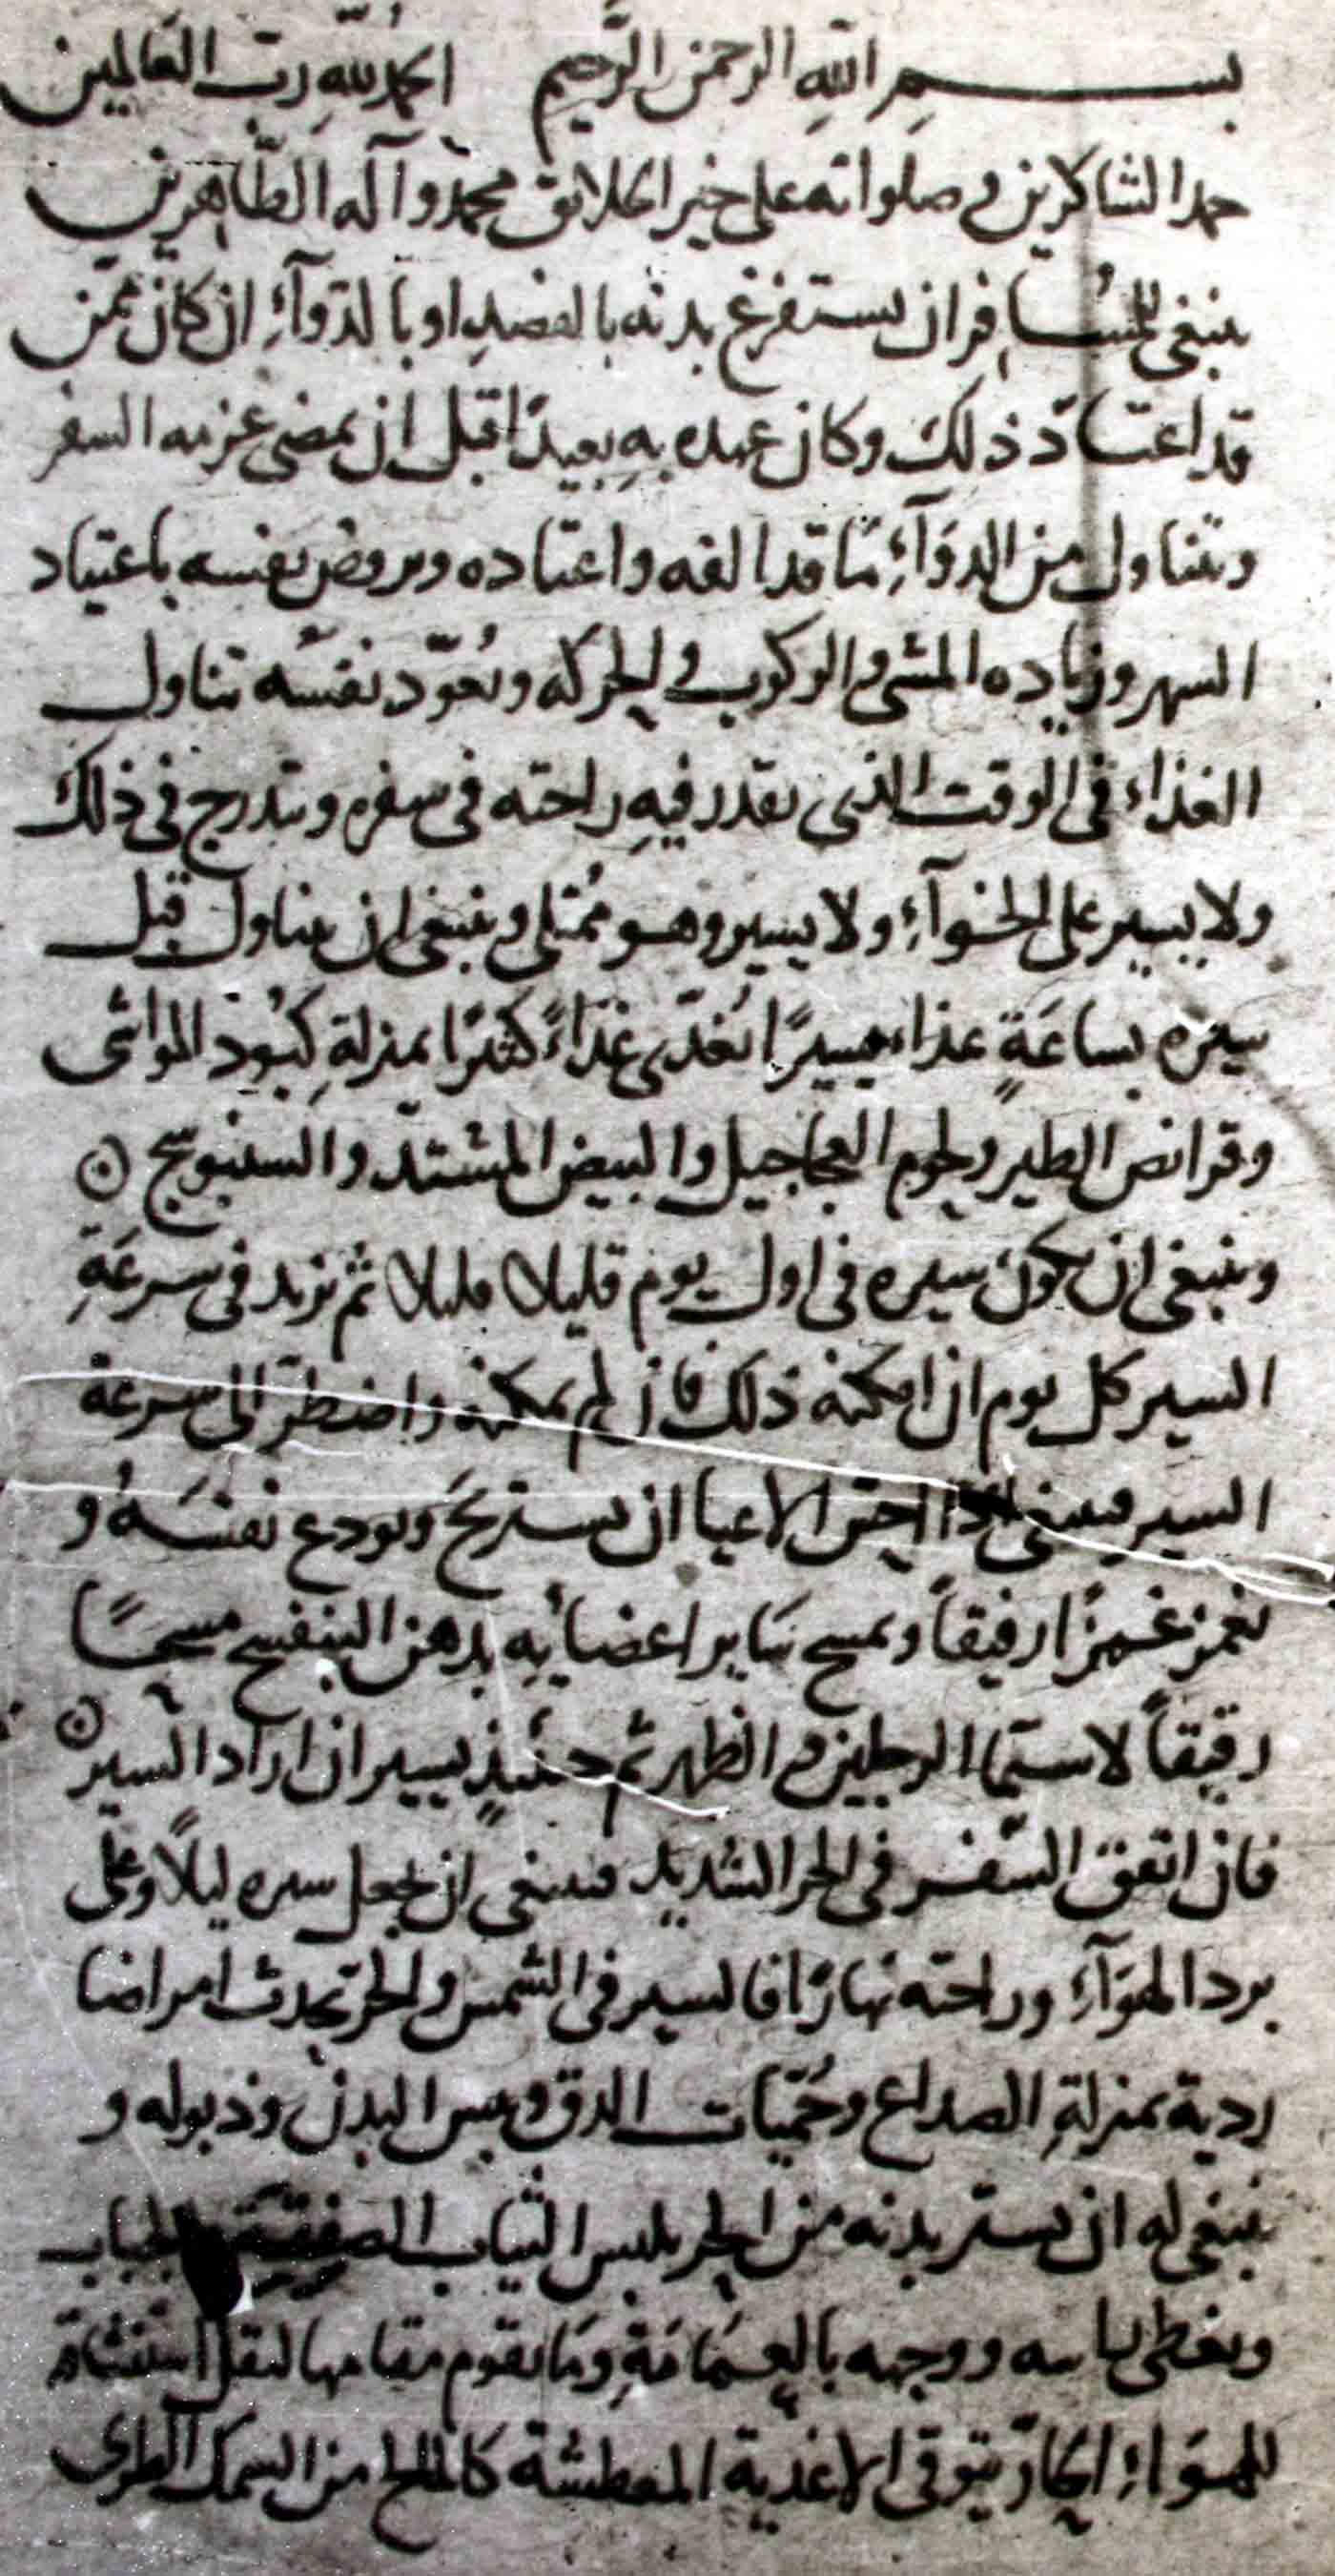 بسم اللهِ الرحمن الرَّحيم الحمدُ للّٰهِ ربّ العَالمين
حمدا لشاكرين و صلواته على خير الخلائق محمّد و آله الطّاهرين
ينبغى للمُسافِر ان يستفرغ بدنه بالفصدِ او بالدّوآءِ ان كان ممّن
قد اعتادّ ذلك وكان عهده بهِ بعيدًا قبل ان يمضى عزمه السفر
ويتناول من الدوَآءِ مَا قد الفه واعتاده ويروض نفسه باعتياد
السهر وزياده المشى و الركوب و الحركه ويُعوّد نفسَه تناول
الغذاء فى الوقت الذى يقدر فيهِ راحته فى سفره ويتدرج فى ذلك
ولا يسير على الخوآءِ ولا يسير وهو مُمتلى وينبغى ان يتناول قبل
سيره بساعَةٍ غذاء يسيرًا يُغذّى غذَاءً كثيرًا بمنزلةِ كبُود المواشى
وقرانص الطير ولحوم العجاجيل والبيض المشتدّ والسنبوسج
وينبغى ان يكون سيره فى اول يوم قليلا قليلا ثم يزيد فى سرعَةِ
السير كل يوم ان امكنه ذلك فان لم يمكنه واضطرّ الى سرعة
السير فينبغى اذا احسّ الاعيا ان يستريحَ ويودع نفسَهُ و
يغمز غمزًا رفيقاً ويمسح سَاير اعضائِه بدهن البنفسج مسحًا
رقيقاً لاسيّما الرجلين و الظهر ثم حينَئذٍ يسير ان اراد السير
فان اتفق السّفر فى الحر الشديد فينبغى ان يجعل سيره ليلاً وعلى
برد الهوَآءِ وراحته نهارًا فالسير فى الشمس والحرّ يحدث امراضا
ردية بمنزلةِ الصداع وحُمّيات الدق ويبس البدن وذبوله و
ينبغى له ان يستر بدنه من الحر بلبس الثياب الصفيقة
ويغطى راسه ووجهه بالعِمَامَةِ ومَا يقوم مقامها ليقل استنشاقه
للهوَاءِ الحَارّ يتوقى الاغذية المعطشة كالمالح من السمك الطرى